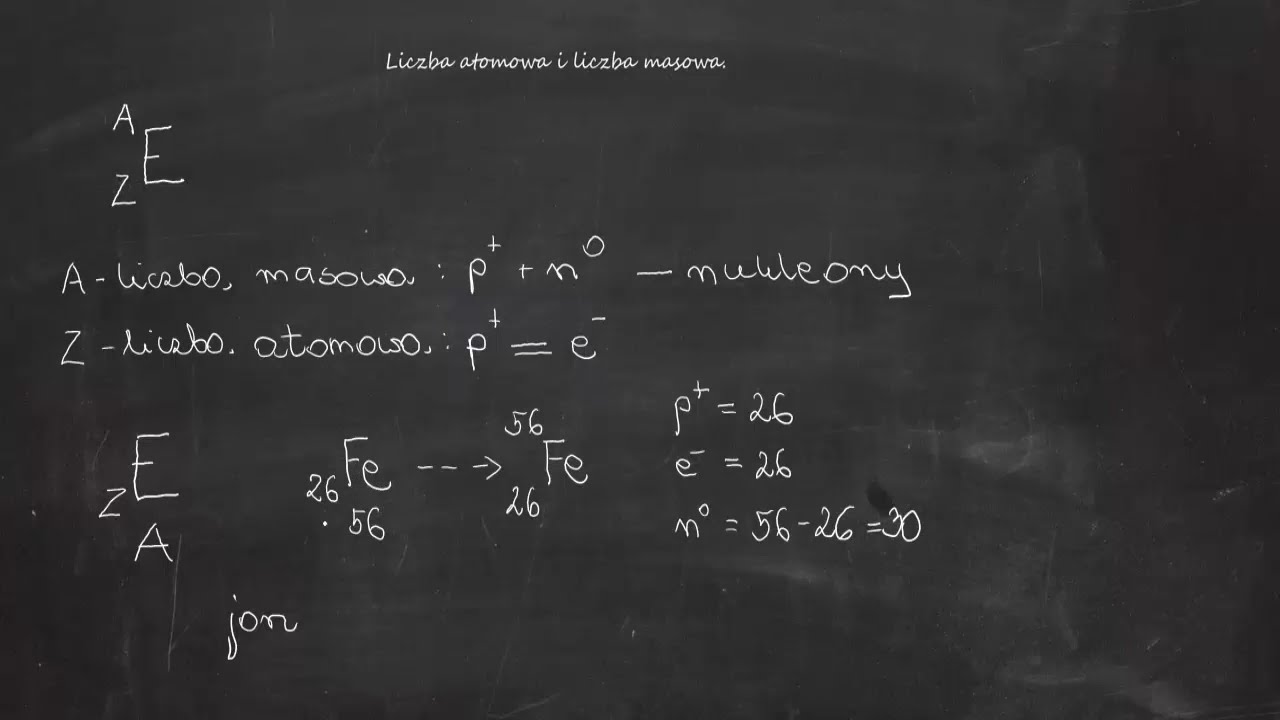 Liczba atomowa i liczba masowa.
A
E
Z
A - liczba masowa : p⁺ + n⁰ — nukleony
Z - liczba atomowa : p⁺ = e⁻
E
Z
A
₂₆Fe --→ ⁵⁶₂₆Fe
56
p⁺ = 26
e⁻ = 26
n⁰ = 56 - 26 = 30
jon